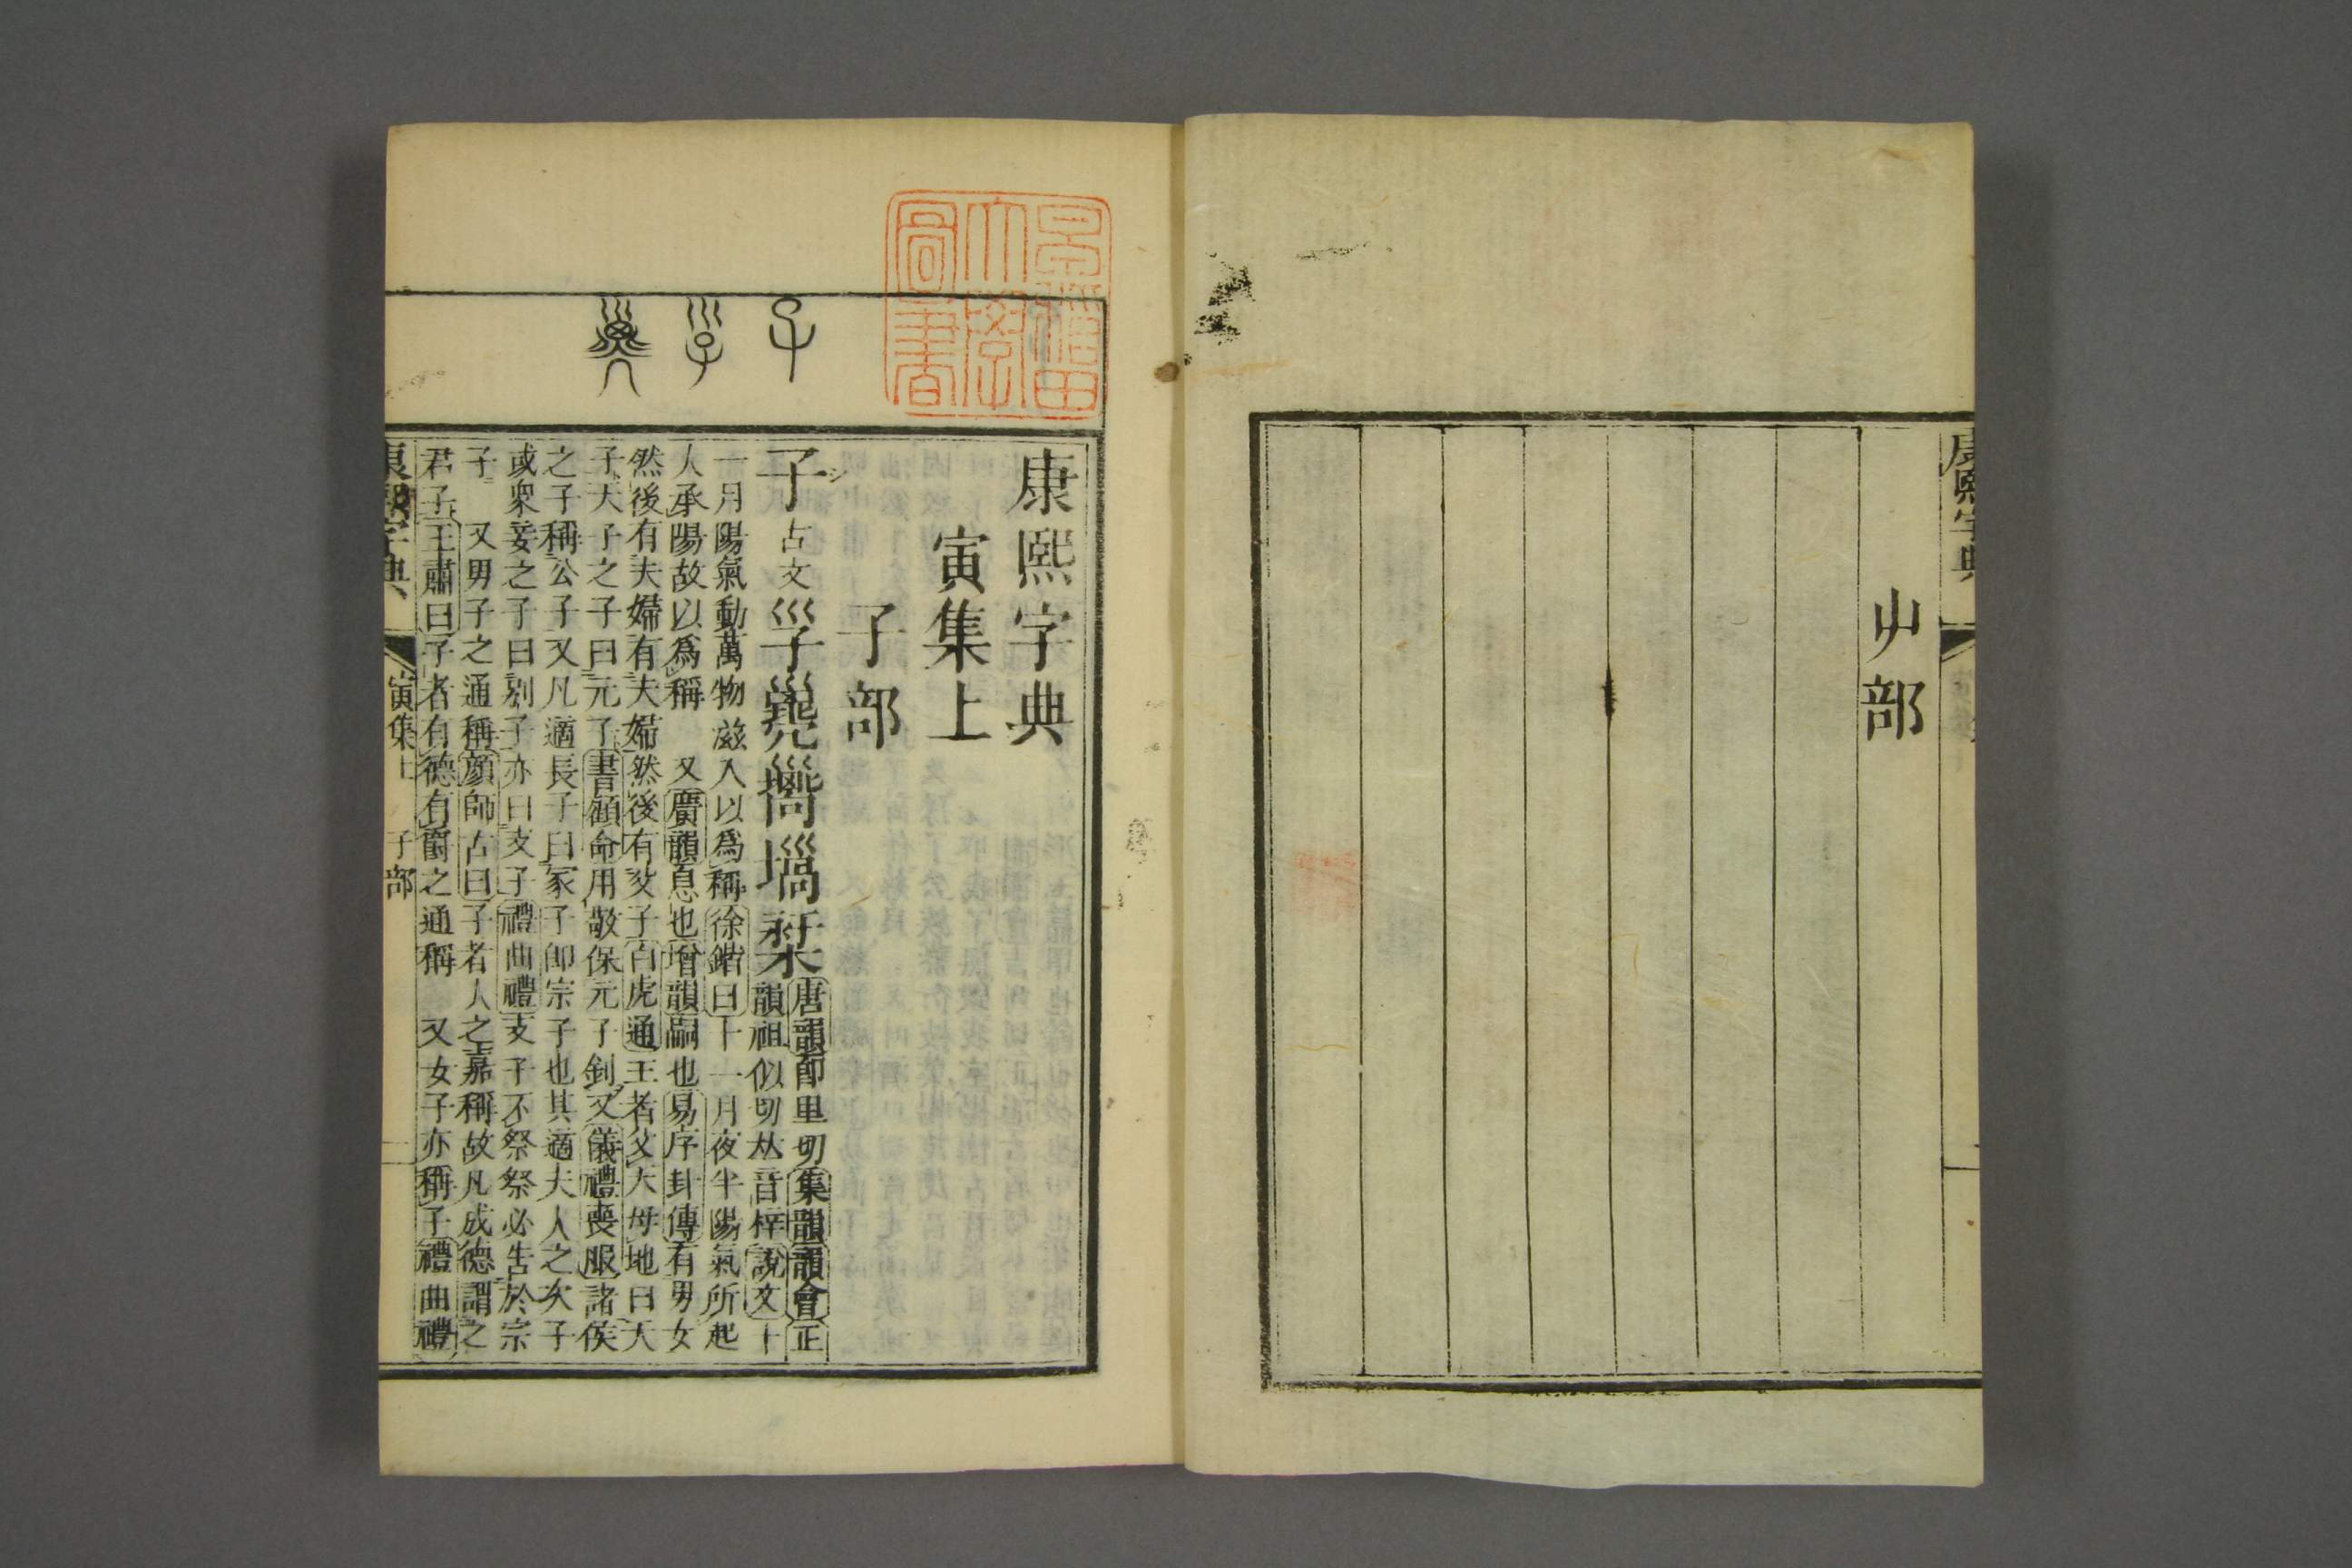 康熙字典
屮部
康熙字典
寅集上
子部
子古文𡿹
唐韻卽里切集韻韻會正
韻祖似切𠀤音梓說文十
一月陽氣動萬物滋入以爲稱徐鍇曰十一月夜半陽氣所起
人承陽故以爲稱 又廣韻息也增韻嗣也易序卦傳有男女
然後有夫婦有夫婦然後有父子白虎通王者父天母地曰天
子天子之子曰元子書顧命用敬保元子釗又儀禮喪服諸侯
之子稱公子又凡適長子曰冢子卽宗子也其適夫人之次子
或衆妾之子曰別子亦曰支子禮曲禮支子不祭祭必告於宗
子 又男子之通稱顏師古曰子者人之嘉稱故凡成德謂之
君子王肅曰子者有德有爵之通稱 又女子亦稱子禮曲禮
康熙字典 寅集上 子部